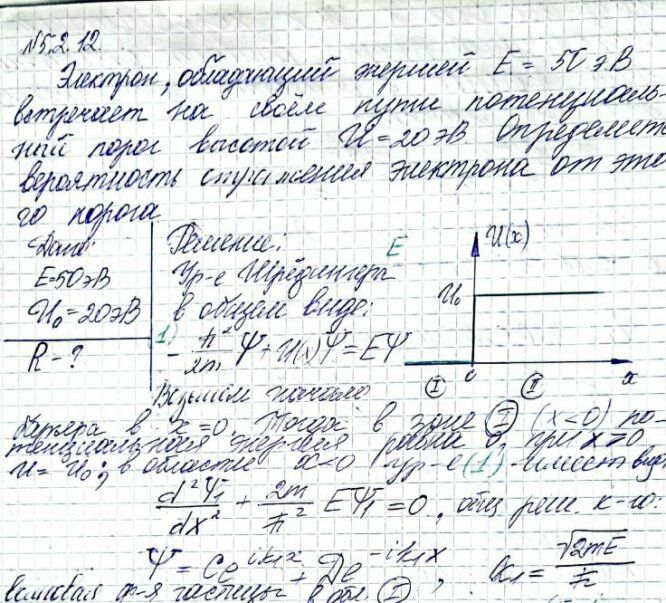 №5.2.12.
Электрон, обладающий энергией E = 50 эВ
встречает на своём пути потенциаль-
ный порог высотой U = 20 эВ. Определить
вероятность отражения электрона от это
го порога
Дано:
E = 50 эВ
U₀ = 20 эВ
R - ?
Решение:
Ур-е Шрёдингера
в общем виде:
1) - ħ²/2m Ψ + U(x)Ψ = EΨ
Возьмём начало
E
U(x)
U₀
0
x
I
II
барьера в x = 0. Тогда в зоне I (x<0) по-
тенциальная энергия равна 0, при x>0
U = U₀; в области x<0 ур-е (1) имеет вид
d²Ψ₁/dx² + 2m/ħ² EΨ₁ = 0, общ реш. к-го:
Ψ = Ce^{ik₁x} + De^{-ik₁x}, k₁ = √2mE/ħ
волновая ф-я частицы в обл. II